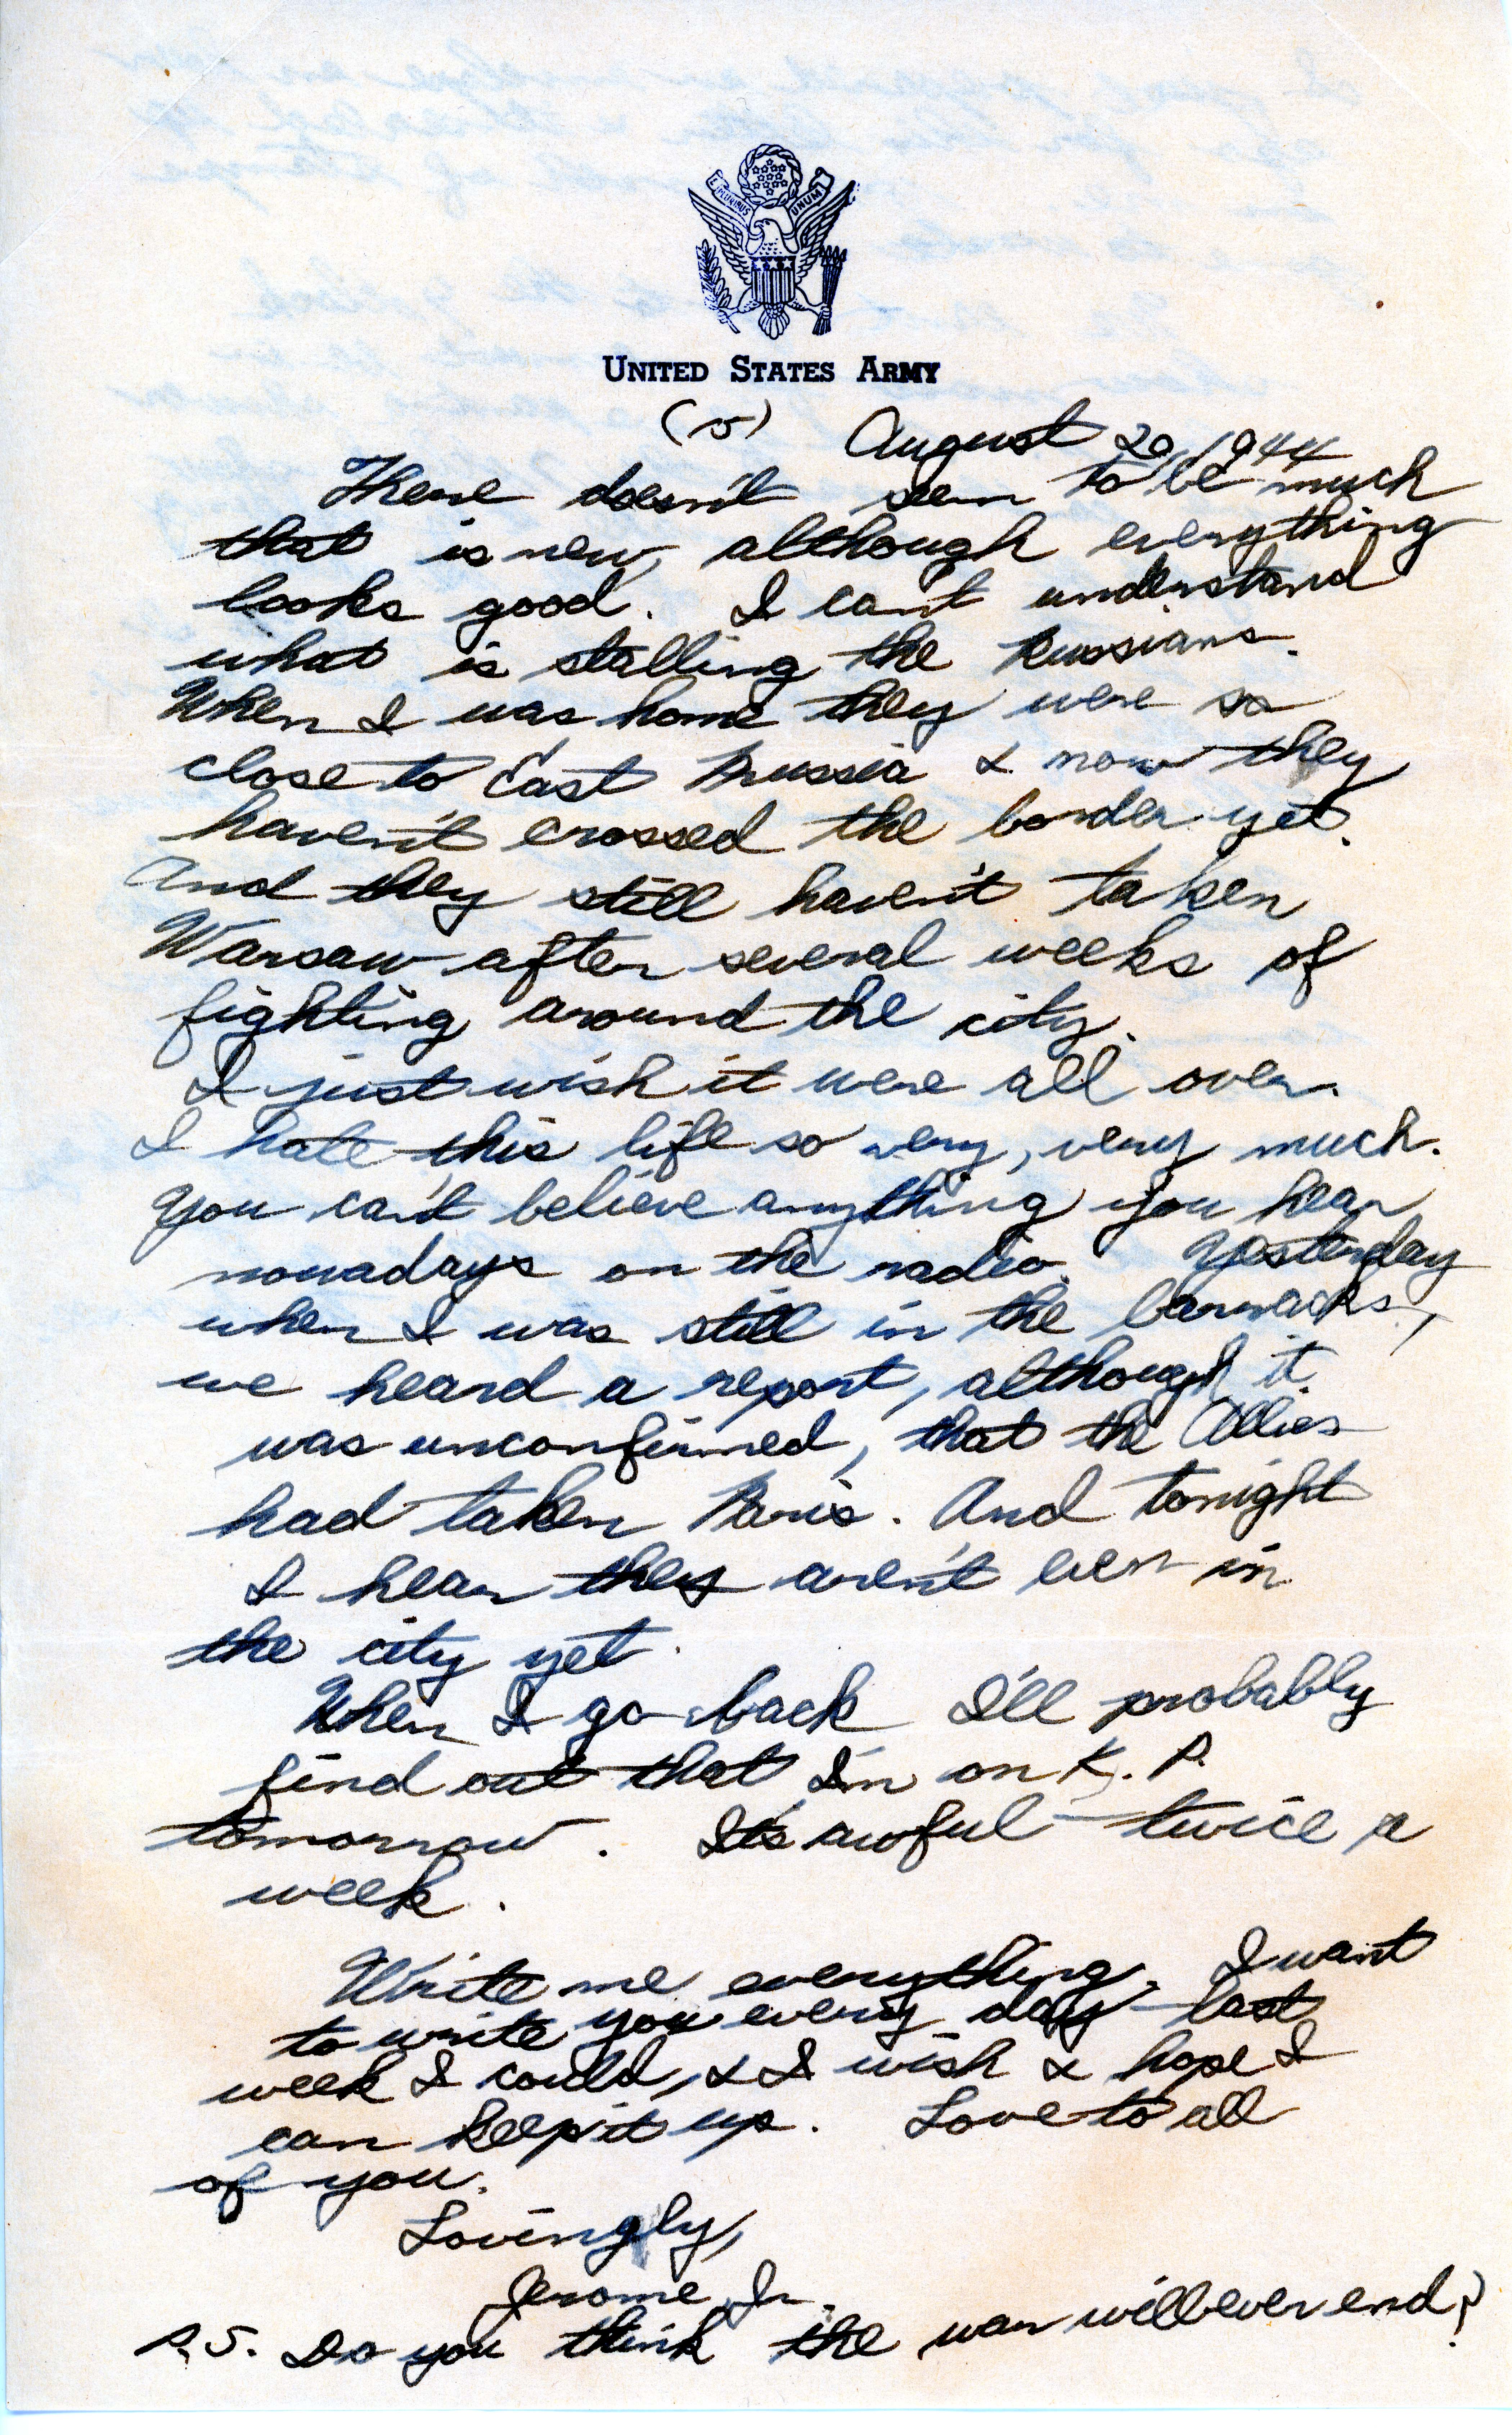 E PLURIBUS UNUM
UNITED STATES ARMY
(5) August 20, 1944
There doesn't seem to be much
that is new, although everything
looks good. I can't understand
what is stalling the Russians.
When I was home they were so
close to East Prussia & now they
haven't crossed the border yet.
And they still haven't taken
Warsaw after several weeks of
fighting around the city.
I just wish it were all over.
I hate this life so very, very much.
You can't believe anything you hear
nowadays on the radio. Yesterday
when I was still in the barracks,
we heard a report, although it
was unconfirmed, that the Allies
had taken Paris. And tonight
I hear they aren't even in
the city yet.
When I go back I'll probably
find out that I'm on K.P.
tomorrow. It's awful - twice a
week.
Write me everything. I want
to write you every day - last
week I could, & I wish & hope I
can keep it up. Love to all
of you.
Lovingly,
Jerome Jr.
P.S. Do you think the war will ever end?